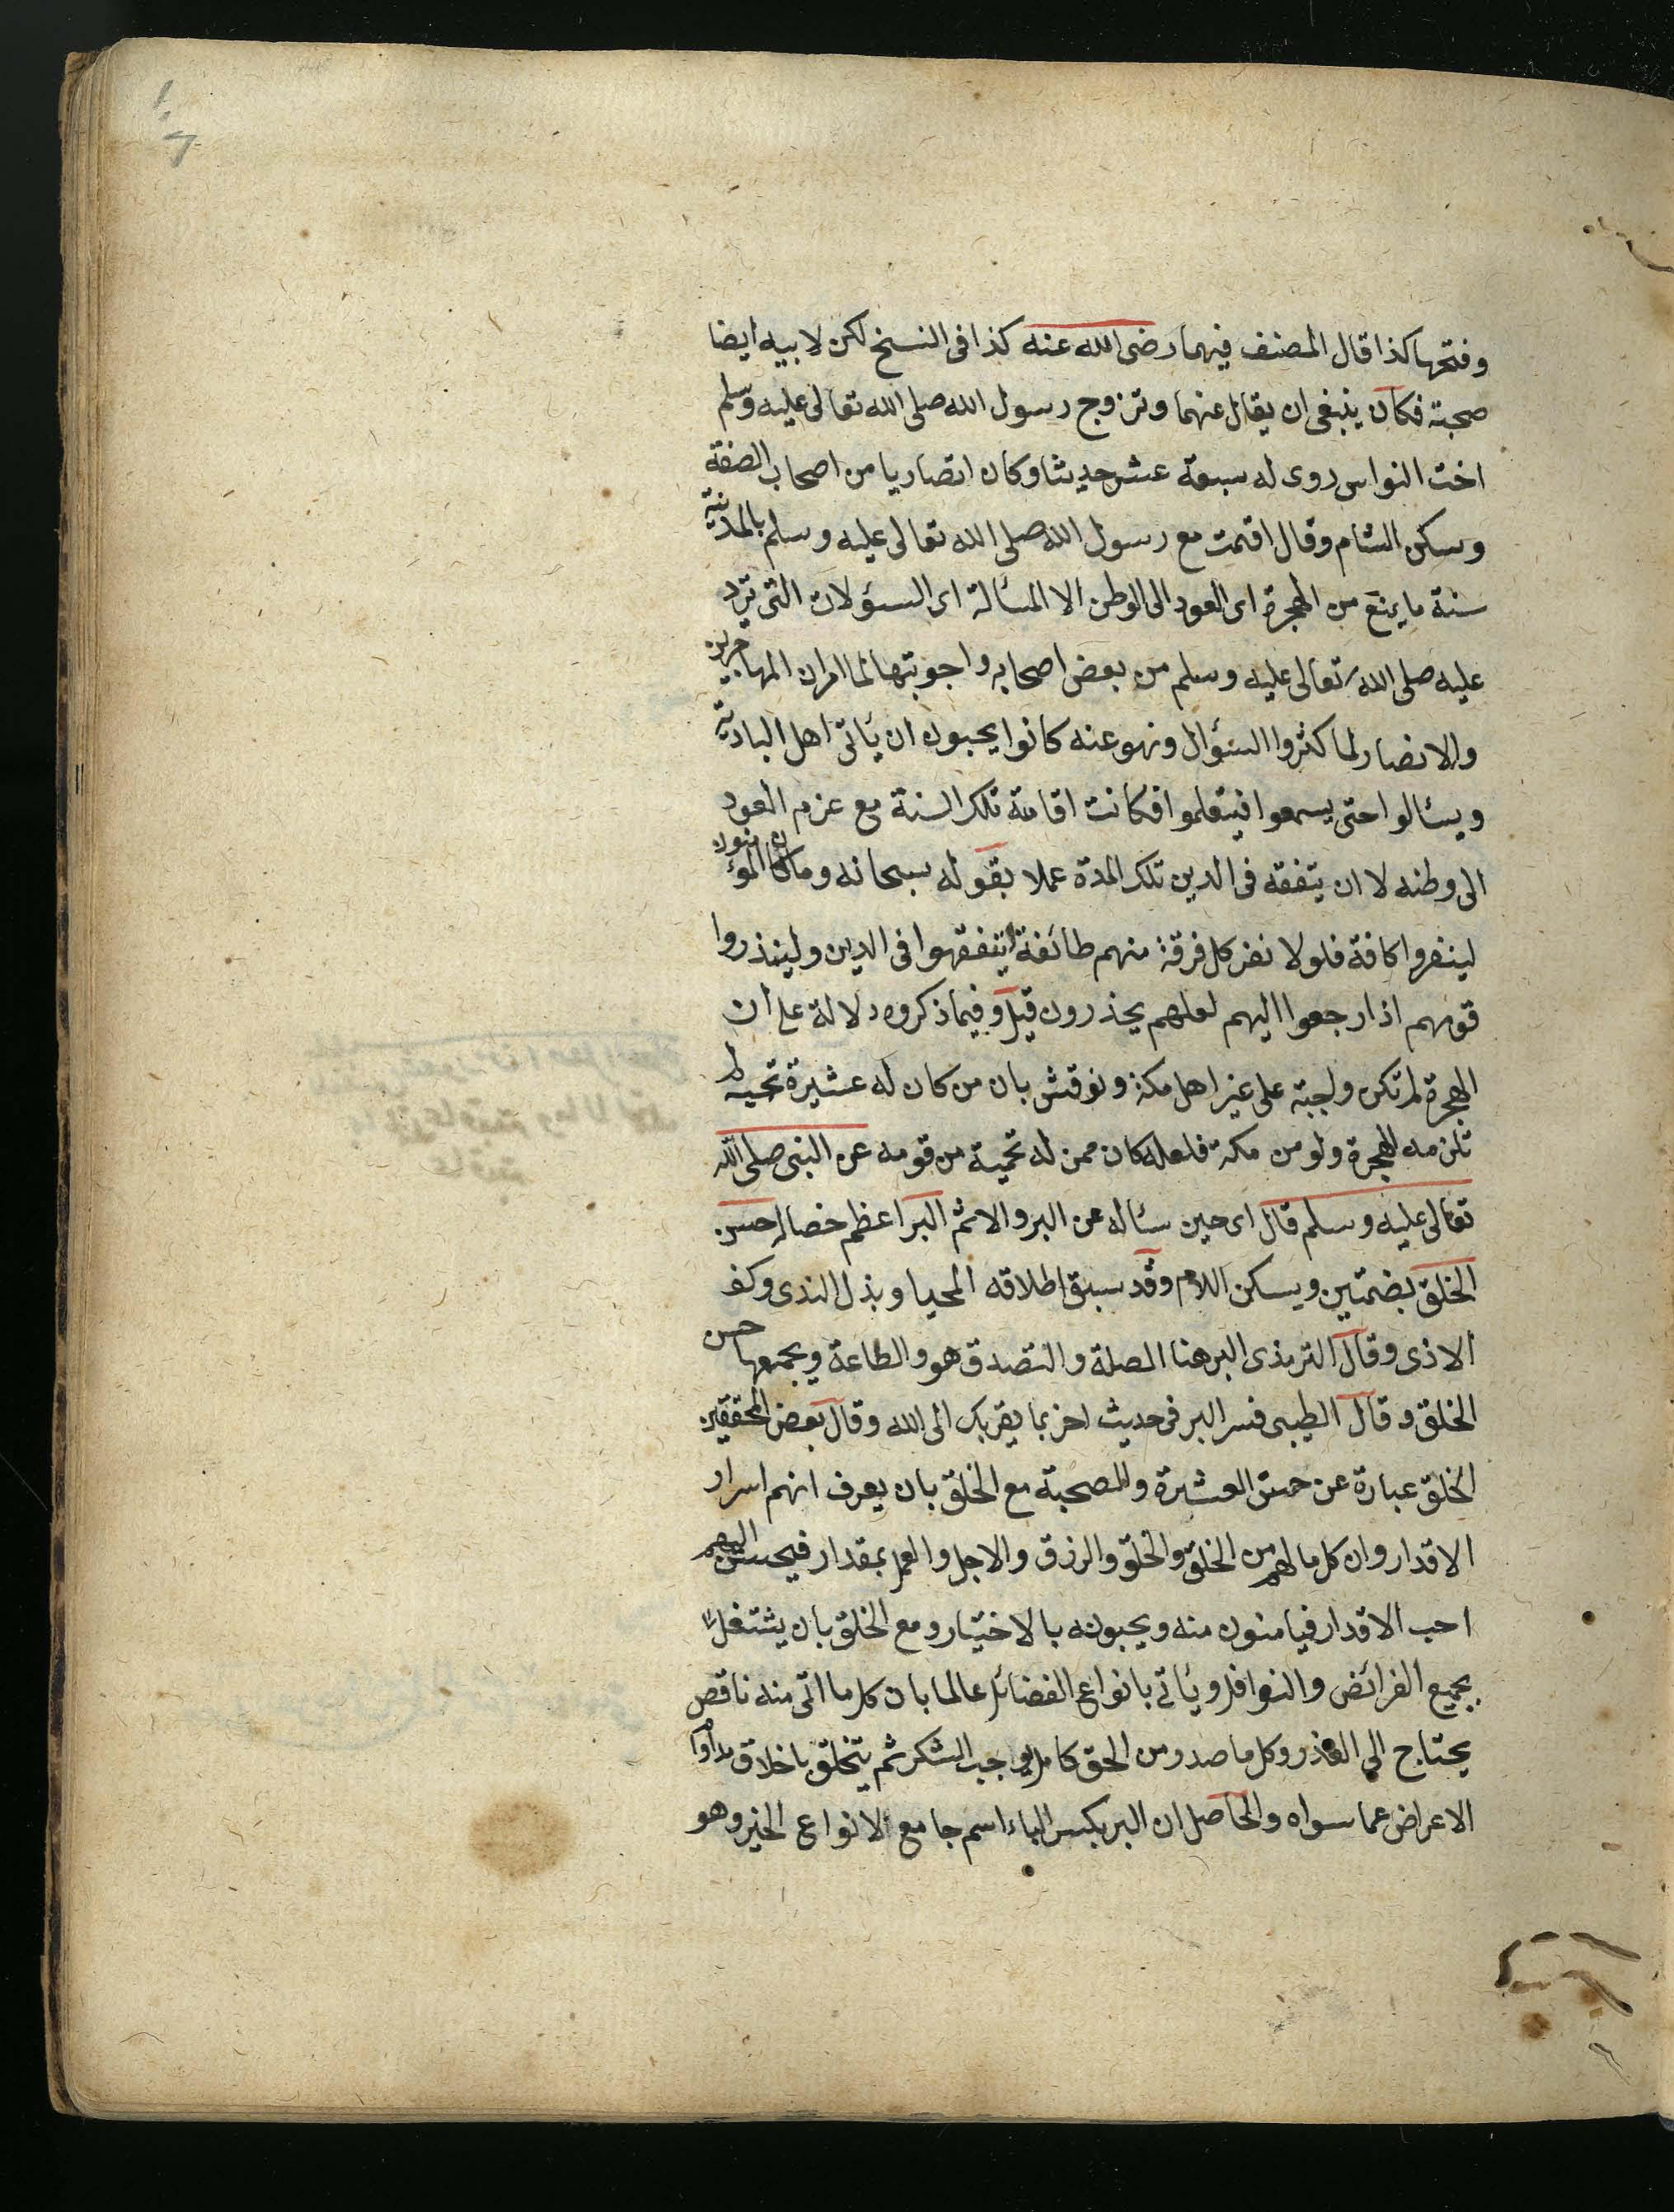 وفتحها كذا قال المصنف فيهما رضى الله عنه كذا فى النسخ لكن لابيه ايضا
صحبة فكان ينبغى ان يقال عنهما وتزوج رسول الله صلى الله تعالى عليه وسلم
اخت النواس روى له سبعة عشر حديثا وكان انصاريا من اصحاب الصفة
وسكن الشام وقال اقمت مع رسول الله صلى الله تعالى عليه وسلم بالمدنية
سنة ما يمنع من الهجرة اى العود الى الوطن الا المسألة اى السؤلات التى ترد
عليه صلى الله تعالى عليه وسلم من بعض اصحابه واجوبتها لما امر ان المهاجرين
والانصار لما كثروا السؤال ونهو عنه كانوا يحبون ان يأتى اهل البادية
ويسئالوا حتى يسمعوا فيتعلموا فكانت اقامة تلك السنة مع عزم العود
الى وطنه لا ان يتفقه فى الدين تلك المدة عملا بقوله سبحانه وما كان المؤمنون
لينفروا كافة فلولا نفر كل فرقة منهم طائفة ليتفقهوا فى الدين ولينذروا
قومهم اذا رجعوا اليهم لعلهم يحذرون قيل وفيما ذكروه دلالة على ان
الهجرة لم تكن واجبة على غير اهل مكة ونوقش بان من كان له عشيرة تحميه لم
تلزمه الهجرة ولو من مكة فلعله كان ممن له تحمية من قومه عن النبى صلى الله
تعالى عليه وسلم قال اى حين سئاله عن البر والاثم البر اعظم خصاله حسن
الخلق بضمتين ويسكن اللام وقد سبق اطلاقه المحيا وبذل الندى وكف
الاذى وقال الترمذى البر هنا الصلة والتصدق هو والطاعة ويجمعها حسن
الخلق وقال الطيبى فسر البر فى حديث اخر بما يقربك الى الله وقال بعض المحققين
الخلق عبارة عن حسن العشرة والصحبة مع الخلق بان يعرف انهم اسراء
الاقدار وان كل ما لهم من الخلق والخلق والرزق والاجل والعمل بمقدار فيحسن اليهم
احب الاقدار فيامنون منه ويحبونه بالاختيار ومع الخلق بان يشتغل
بجميع الفرائض والنوافل ويأتى بانواع الفضائل عالما بان كل ما اتى منه ناقص
يحتاج الى العذر وكل ما صدر من الحق كامل يوجب الشكر ثم يتخلق باخلاق
الاعراض عما سواه والحاصل ان البر بكسر الباء اسم جامع لانواع الخير وهو